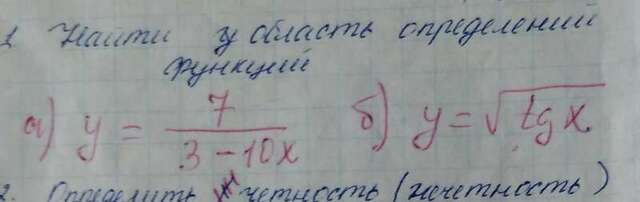 1 Найти область определений
функций
а) y = 7 / (3 - 10x) б) y = √(tg x)
2. Определить четность (нечетность)